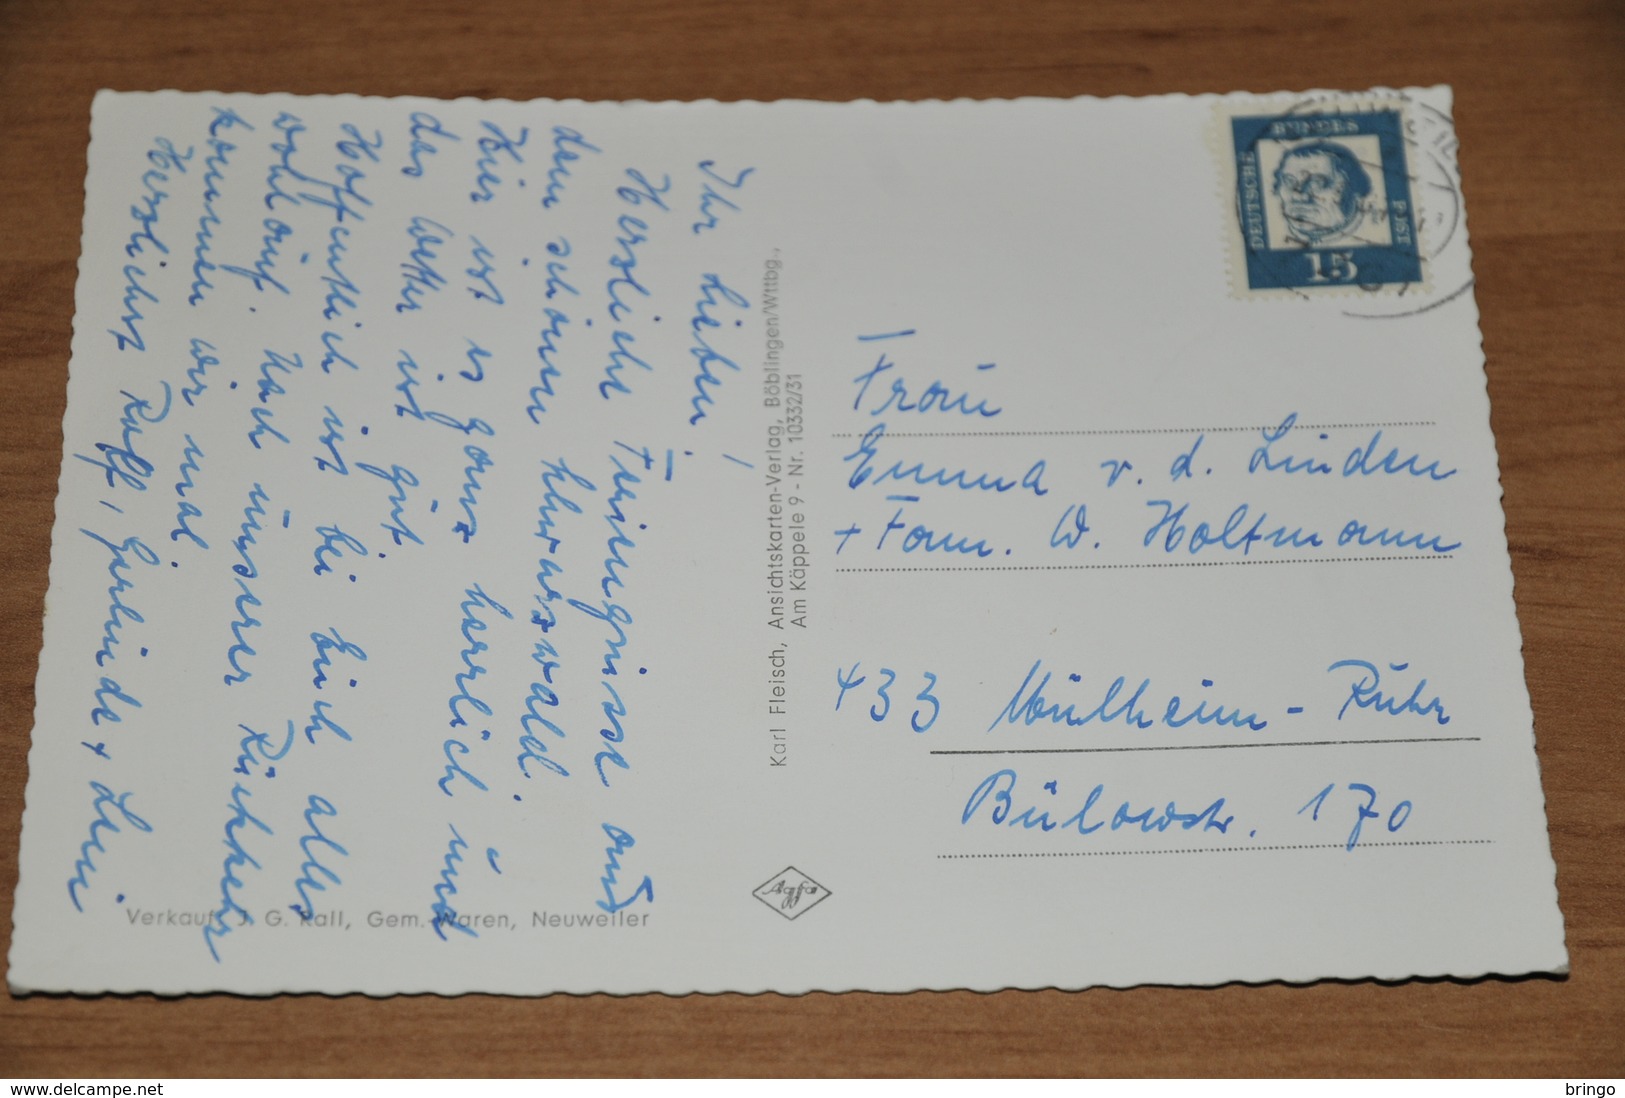 Ihr Lieben!
Herzliche Feriengrüsse aus
dem schönen Schwarzwald.
Hier ist es ganz herrlich und
das Wetter ist gut
Hoffentlich ist bei Euch alles
wohlauf. Nach unserer Rückkehr
kommen wir mal.
Herzlichst Ralf, Gerlinde + Leni
Verkauf: J. G. Rall, Gem.-Waren, Neuweiler
Karl Fleisch, Ansichtskarten-Verlag, Böblingen/Wttbg.,
Am Käppele 9 - Nr. 10332/31
Agfa
DEUTSCHE
BUNDES
POST
15
Frau
Emma v. d. Linden
+ Fam. W. Holtmann
433 Mülheim-Ruhr
Bülowstr. 170
delcampe.net
bringo